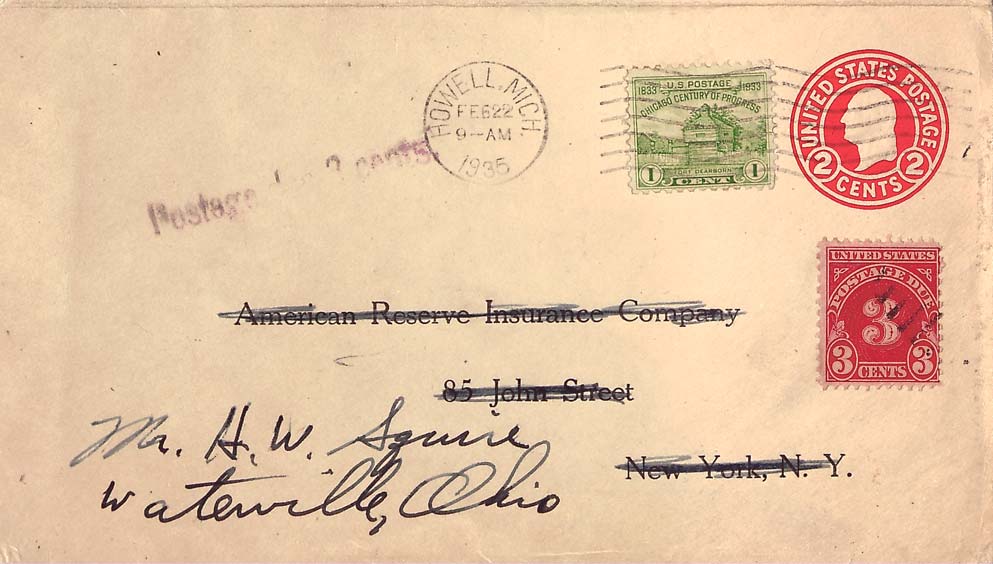 HOWELL, MICH.
FEB 22
9-AM
1935
U.S. POSTAGE
1833 1933
CHICAGO CENTURY OF PROGRESS
FORT DEARBORN
1 CENT 1
UNITED STATES POSTAGE
2 CENTS 2
Postage due 3 cents
UNITED STATES
POSTAGE DUE
3
3 CENTS 3
American Reserve Insurance Company
85 John Street
New York, N. Y.
Mr. H. W. Squire
Waterville, Ohio